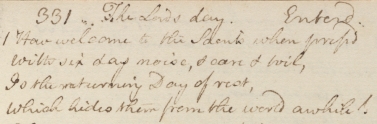 331 .. The Lords day. Entered..
1 How welcome to the Saints when press'd
With six days noise, & care & toil,
Is the returning Day of rest,
Which hides them from the world awhile!.